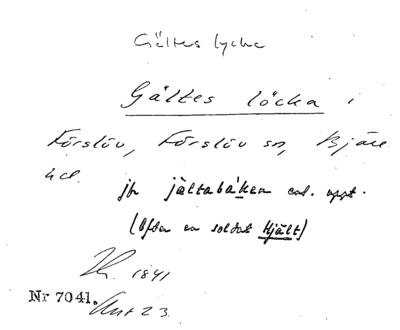 Gältes lycka
Gältes löcka i
Förslöv, Förslöv sn, Bjäre
hd. jfr jältabáken enl. uppt.
(Efter en soldat Hjält)
1841
Nr 7041. 23.